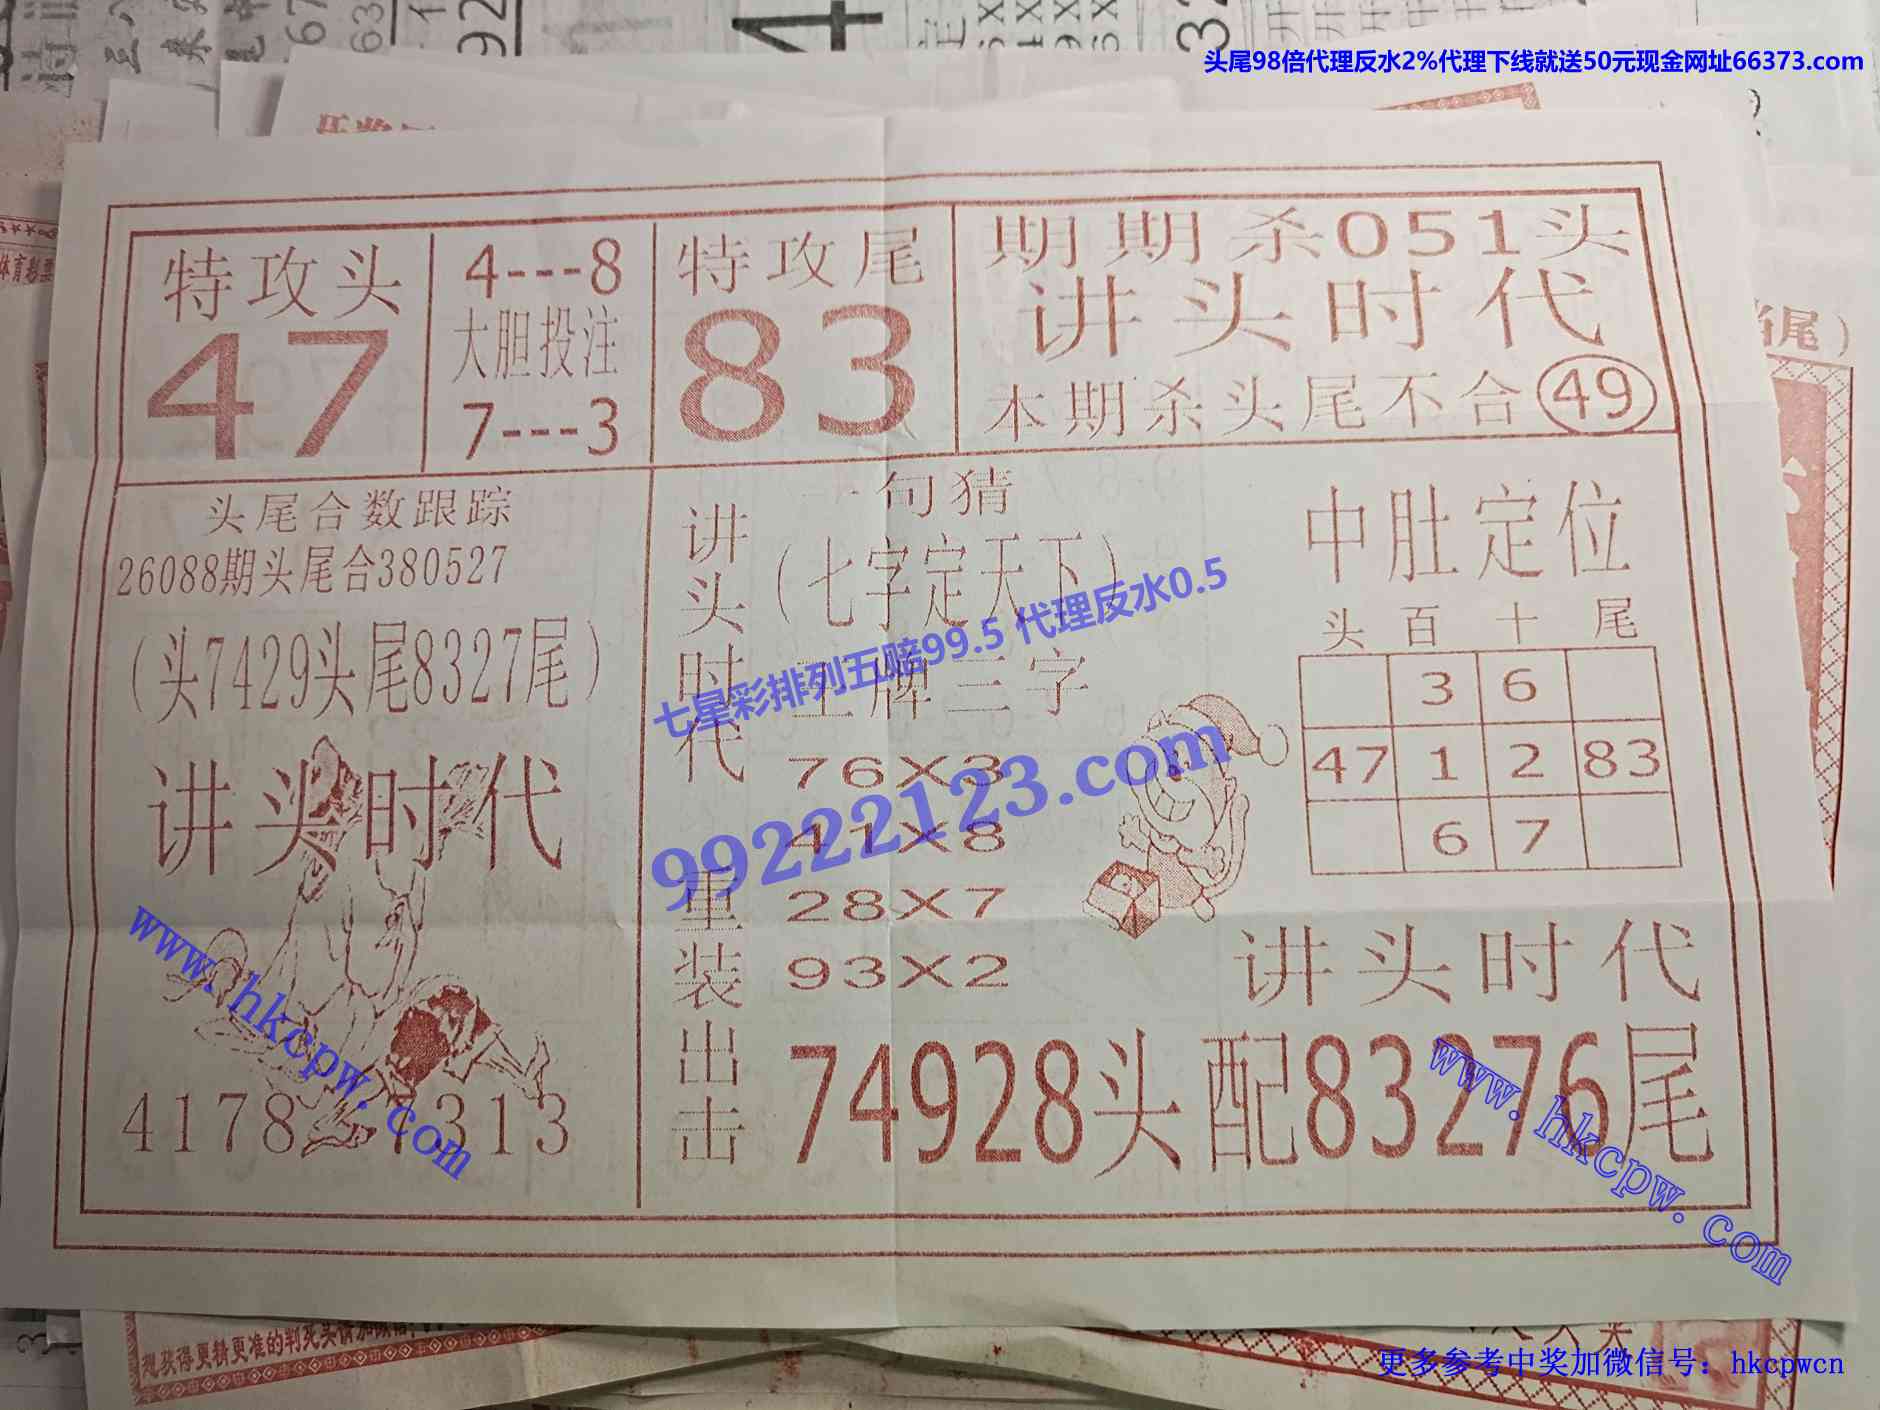 头尾98倍代理反水2%代理下线就送50元现金网址66373.com
特攻头
47
4---8
大胆投注
7---3
特攻尾
83
期期杀051头
讲头时代
本期杀头尾不合49
头尾合数跟踪
26088期头尾合380527
(头7429头尾8327尾)
讲头时代
4178 7313
讲头时代
重装出击
一句猜
(七字定天下)
王牌三字
76X3
41X8
28X7
93X2
中肚定位
头 百 十 尾
3 6
47 1 2 83
6 7
讲头时代
74928头配83276尾
七星彩排列五赔99.5 代理反水0.5
99222123.com
www.hkcpw.com
www.hkcpw.com
想获得更精更准的判死头请加微信
更多参考中奖加微信号：hkcpwcn